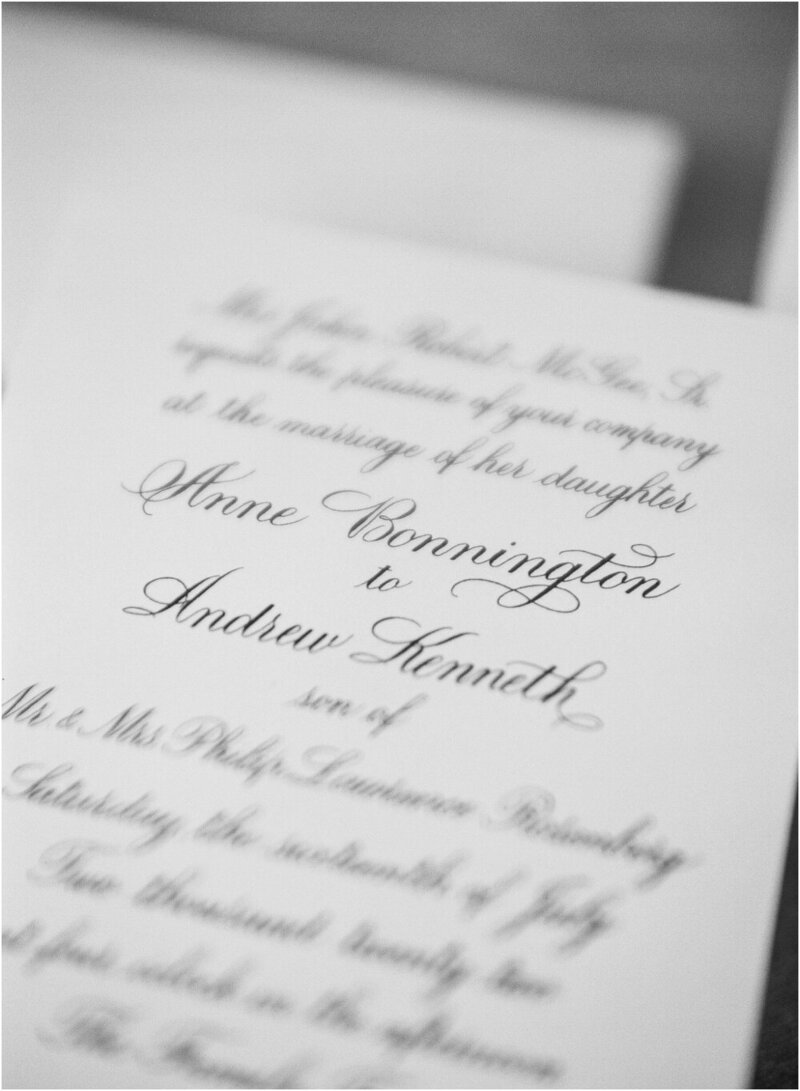 Mrs John Robert McGee, Sr.
requests the pleasure of your company
at the marriage of her daughter
Anne Bonnington
to
Andrew Kenneth
son of
Mr & Mrs Philip Lawrence Rosenberg
Saturday, the sixteenth of July
Two thousand twenty two
at five o'clock in the afternoon
The